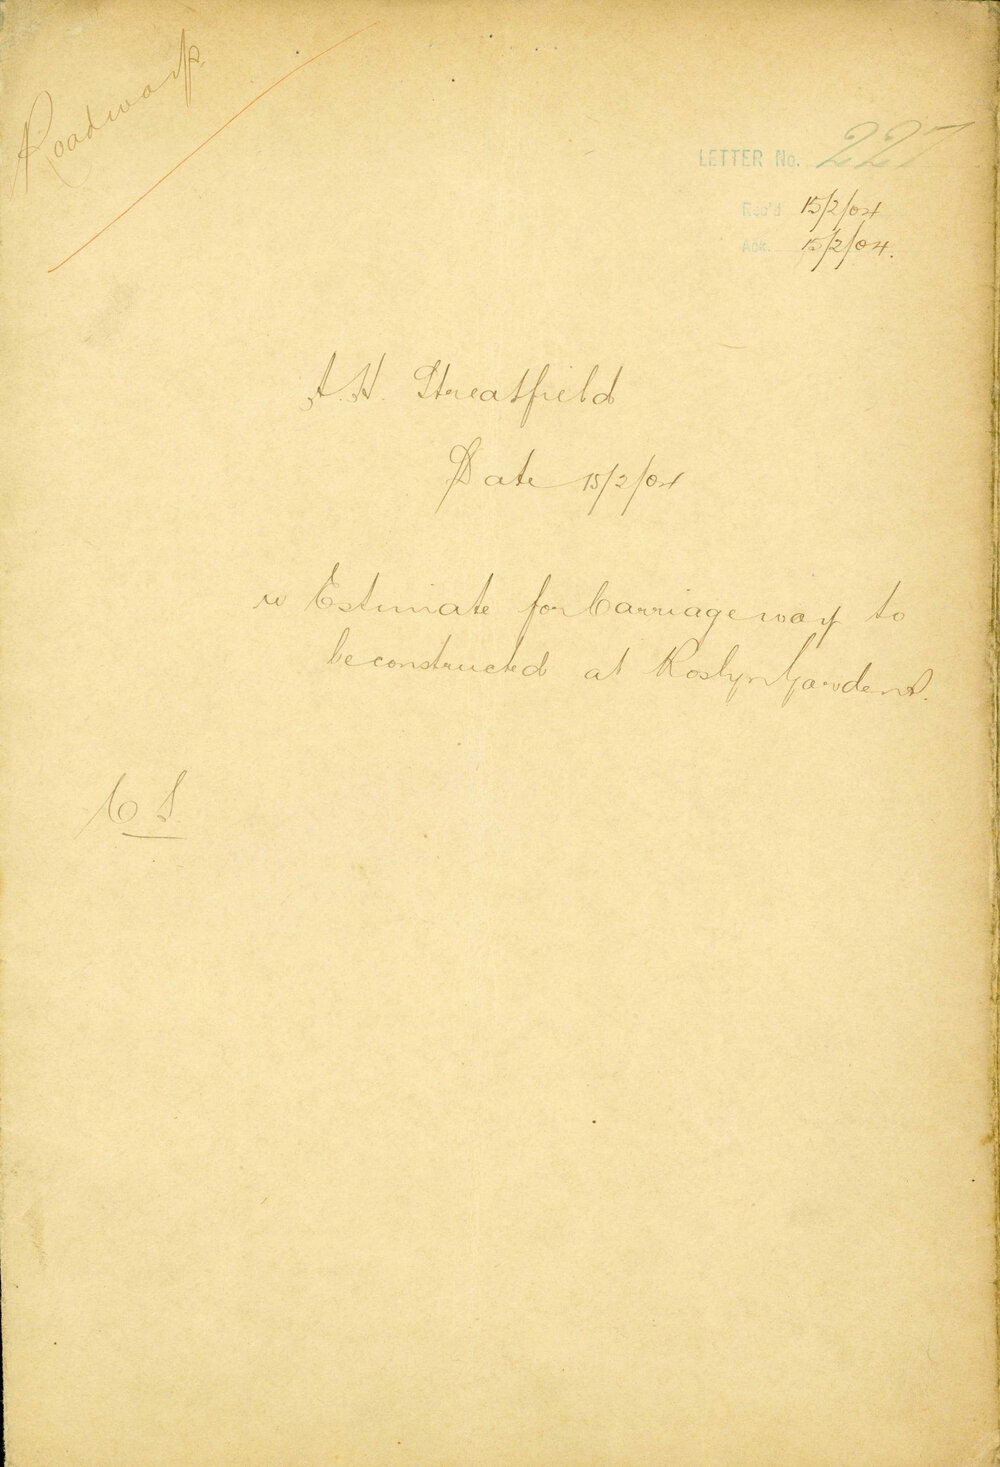 Roadways
LETTER No. 227
Rec'd 15/2/04
Ack. 15/2/04.
A.H. Streatfield
Date 15/2/04
re Estimate for Carriageway to
be constructed at Roslyn Gardens.
C S